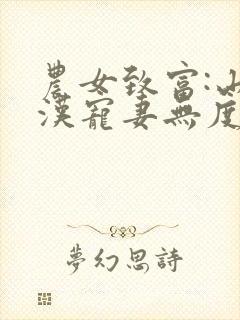 農女致富:山
漢寵妻無度
夢幻思詩